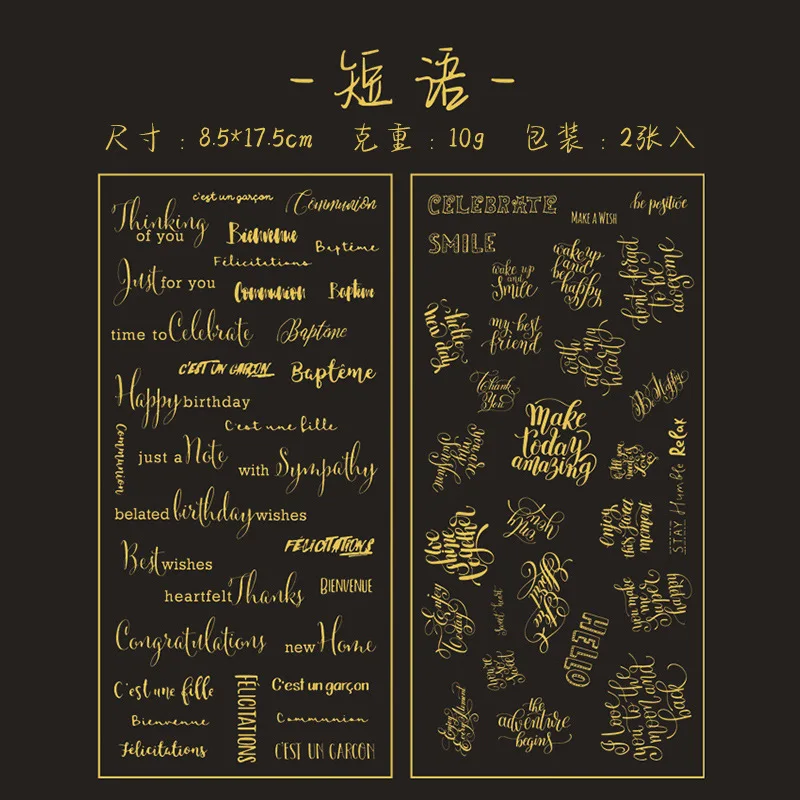 -短语-
尺寸：8.5*17.5cm 克重：10g 包装：2张入
c'est un garçon
Communion
Thinking
of you
Bienvenue
Baptême
Félicitations
Just for you
Communion
Baptême
time to Celebrate
Baptême
C'EST UN GARÇON
Baptême
Happy birthday
C'est une fille
Communion
just a Note
with Sympathy
belated birthday wishes
FÉLICITATIONS
Best wishes
heartfelt Thanks
BIENVENUE
Congratulations
new Home
C'est une fille
FÉLICITATIONS
C'est un garçon
Bienvenue
Communion
Félicitations
C'EST UN GARCON
CELEBRATE
MAKE A WISH
be positive
SMILE
wake up
and
Smile
wake up
and
be
happy
don't forget
to be
awesome
my best
friend
with
all my
heart
Thank
You
B Happy
make
today
amazing
you are
my
Sunshine
Relax
Humble
STAY
enjoy
this good
moment
hey
you
we
Shine
together
Enjoy
Today
sweet heart
HELLO
you make
me
super
happy
you're
so
Sweet
Enjoy
Every Moment
the
adventure
begins
I love
you to the
moon and
back